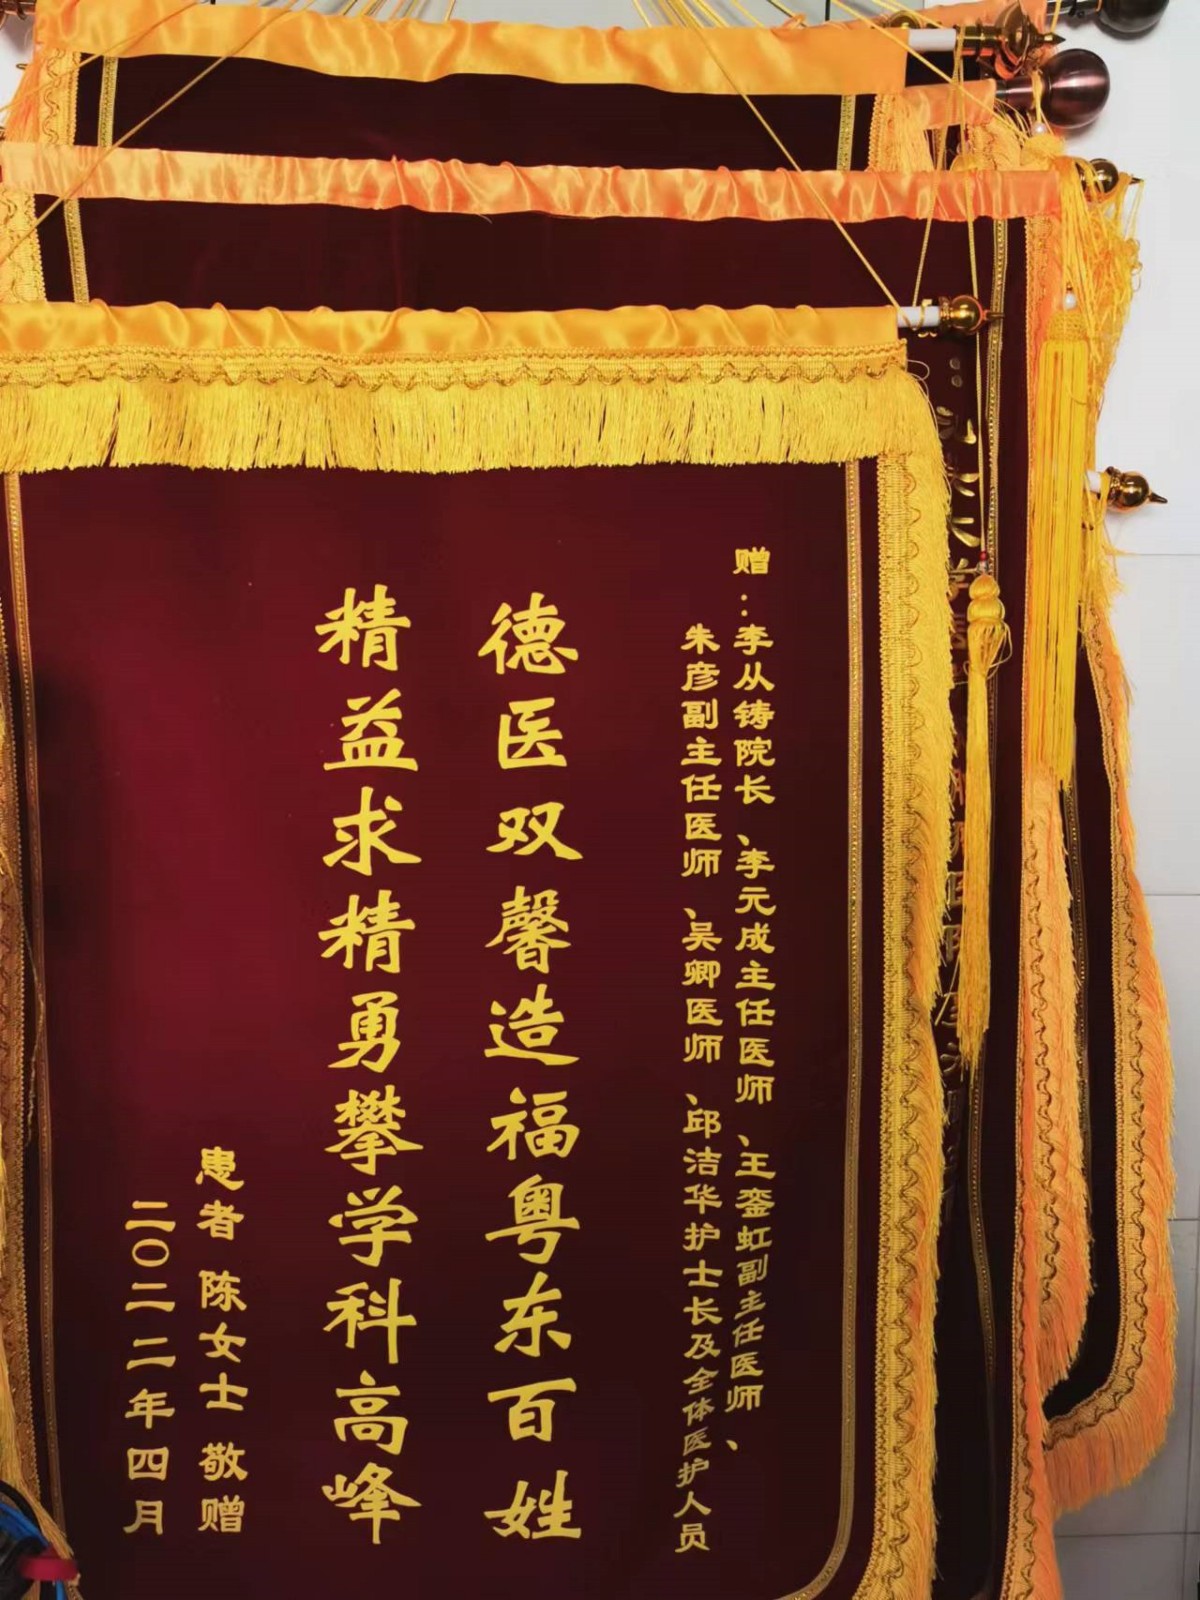 赠：李从铸院长、李元成主任医师、王銮虹副主任医师、
朱彦副主任医师、吴卿医师、邱洁华护士长及全体医护人员
德医双馨造福粤东百姓
精益求精勇攀学科高峰
患者 陈女士 敬赠
二〇二二年四月